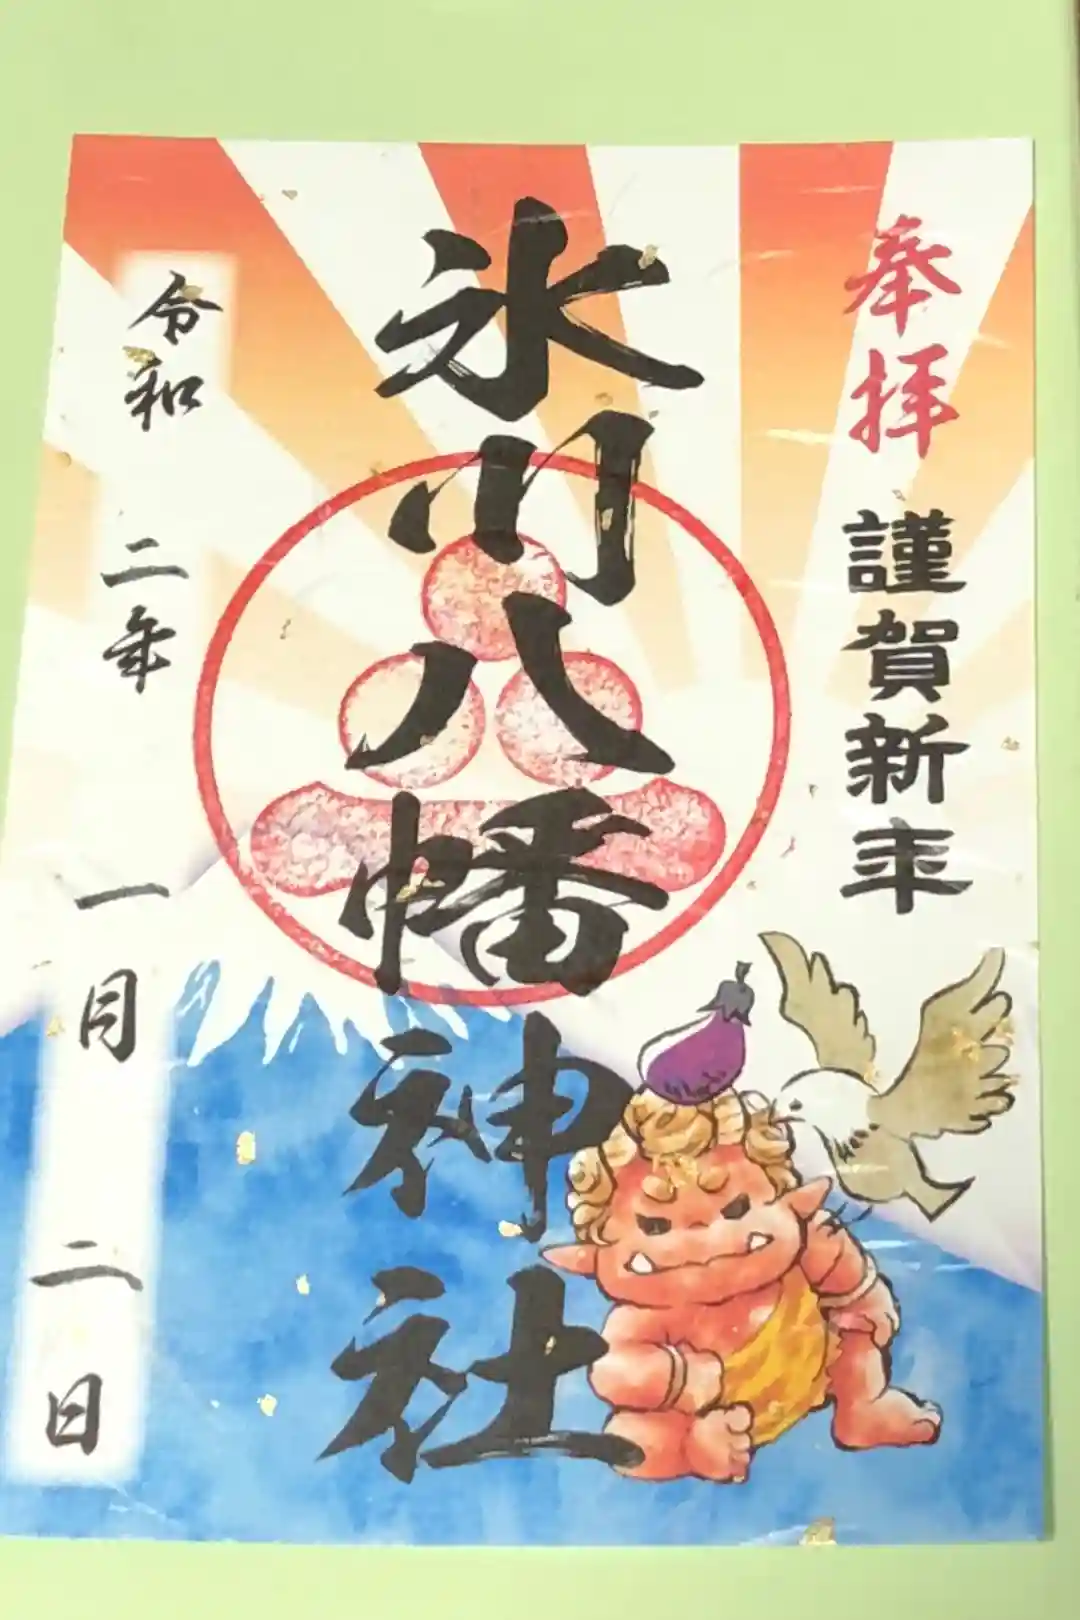 奉拝 謹賀新年
氷川八幡神社
令和 二年 一月 二日